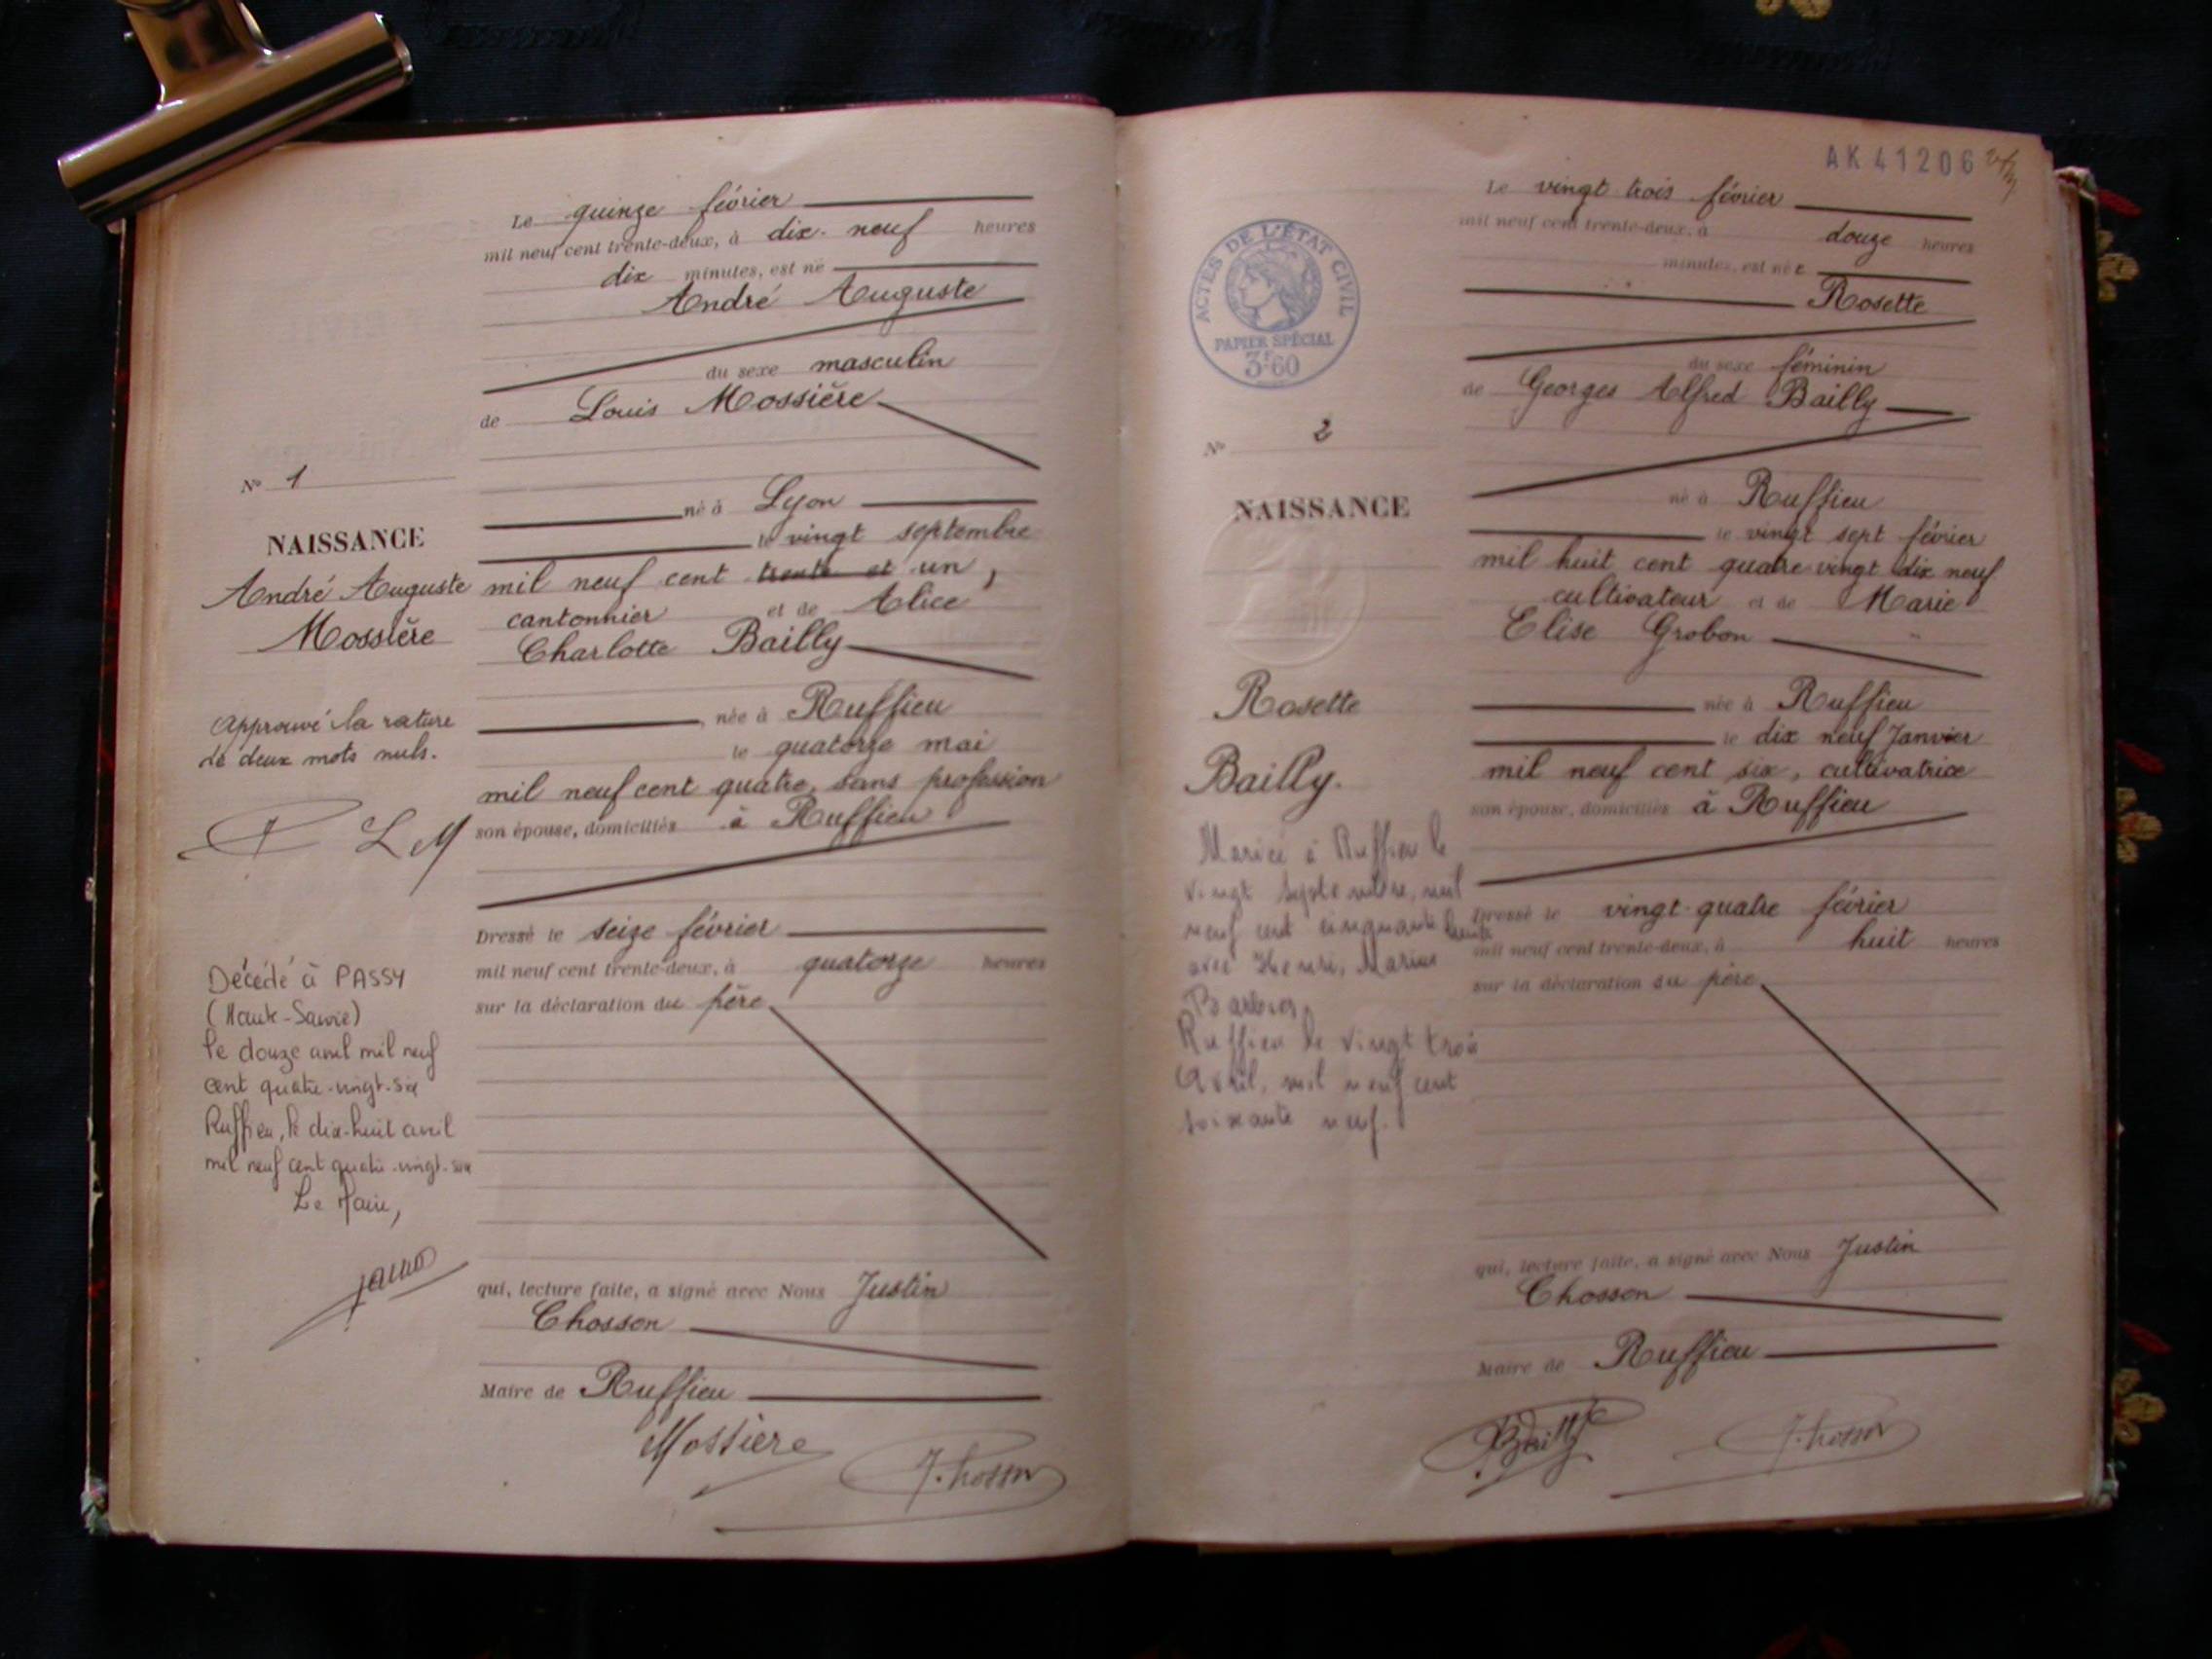 Le quinze février
mil neuf cent trente-deux, à dix-neuf heures
dix minutes, est né
André Auguste
du sexe masculin
de Louis Mossière
né à Lyon
le vingt septembre
mil neuf cent trente et un,
cantonnier et de Alice
Charlotte Bailly
née à Ruffieu
le quatorze mai
mil neuf cent quatre, sans profession
son épouse, domiciliés à Ruffieu
Dressé le seize février
mil neuf cent trente-deux, à quatorze heures
sur la déclaration du père
qui, lecture faite, a signé avec Nous Justin
Chosson
Maire de Ruffieu
Mossière
J. Chosson
N° 1
NAISSANCE
André Auguste
Mossière
Approuvé la rature
de deux mots nuls.
L M
Décédé à PASSY
(Haute-Savoie)
le douze avril mil neuf
cent quatre-vingt-six
Ruffieu, le dix-huit avril
mil neuf cent quatre-vingt-six
Le Maire,
AK 41206
ACTES DE L'ÉTAT CIVIL
PAPIER SPÉCIAL
3F60
N° 2
NAISSANCE
Rosette
Bailly.
Mariée à Ruffieu le
vingt septembre, mil
neuf cent cinquante
avec Henri, Marius
Barbier.
Ruffieu le vingt trois
Avril, mil neuf cent
soixante neuf.
Le vingt trois février
mil neuf cent trente-deux, à douze heures
minutes, est née
Rosette
du sexe féminin
de Georges Alfred Bailly
né à Ruffieu
le vingt sept février
mil huit cent quatre vingt dix neuf
cultivateur et de Marie
Elise Grobon
née à Ruffieu
le dix neuf Janvier
mil neuf cent six, cultivatrice
son épouse, domiciliés à Ruffieu
Dressé le vingt-quatre février
mil neuf cent trente-deux, à huit heures
sur la déclaration du père
qui, lecture faite, a signé avec Nous Justin
Chosson
Maire de Ruffieu
Bailly
J. Chosson